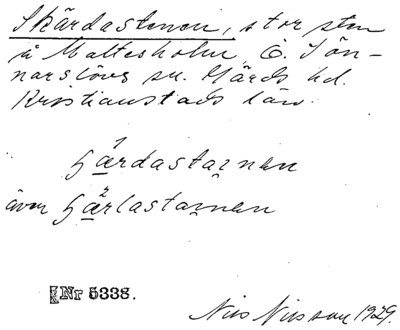 Skärdastenen, stor sten
å Maltesholm Ö. Sön-
narslövs sn. Gärds hd.
Kristianstads län.
hạ̈rdastaɪnen
även hạ̈rlastaɪnen
Nr 5338.
Nils Nilsson 1929.